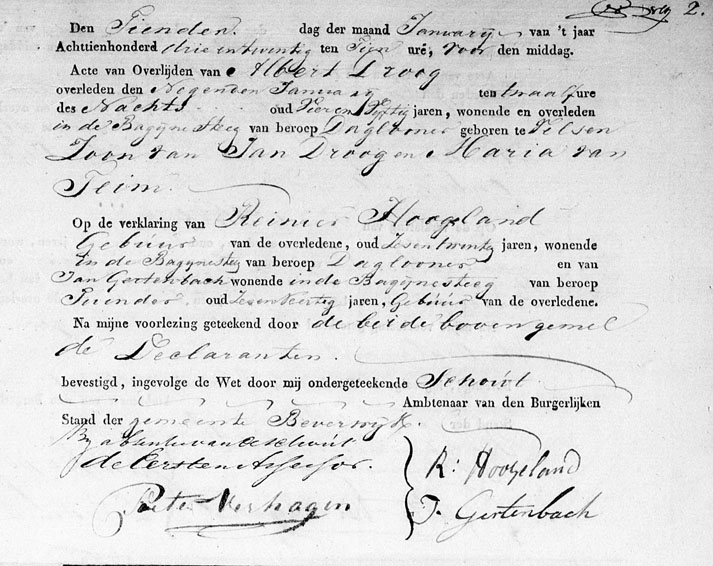 2.
Den Tienden. dag der maand January van 't jaar
Achttienhonderd drie en twintig ten Tien ure, voor den middag.
Acte van Overlijden van Albert Droog
overleden den Negenden January ten twaalf ure
des Nachts oud Vier en Vyftig jaren, wonende en overleden
in de Bagynesteeg van beroep Daglooner geboren te Velsen
Zoon van Jan Droog en Maria van
Teim.
Op de verklaring van Reinier Hoogeland
Gebuur van de overledene, oud Zesentwintig jaren, wonende
in de Bagynesteeg van beroep Daglooner en van
Jan Gertenbach wonende in de Bagynesteeg van beroep
Tuinder, oud Zesenveertig jaren, Gebuur van de overledene.
Na mijne voorlezing geteekend door de beide bovengemel
de Declaranten.
bevestigd, ingevolge de Wet door mij ondergeteekende Schout
Ambtenaar van den Burgerlijken
Stand der gemeente Beverwyk.
By absentie van de Schout
de Eersten Assessor.
Pieter Verhagen
R: Hoogeland
J. Gertenbach